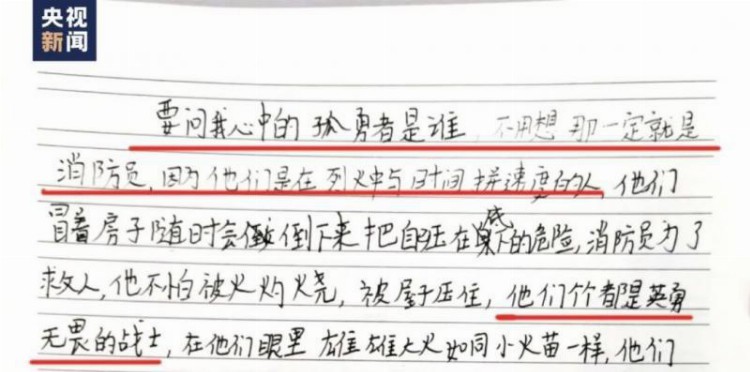 央视
新闻
要问我心中的孤勇者是谁，不用想那一定就是
消防员，因为他们是在烈火中与时间拼速度的人，他们
冒着房子随时会倒下来把自己压在底下的危险，消防员为了
救人，他不怕被火灼烧，被屋子压住，他们个个都是英勇
无畏的战士，在他们眼里雄雄大火如同小火苗一样，他们